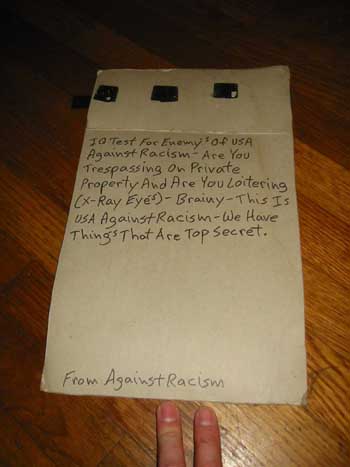 IQ Test For Enemy's Of USA
Against Racism - Are You
Trespassing On Private
Property And Are You Loitering
(X-Ray Eyes) - Brainy - This Is
USA Against Racism - We Have
Things That Are Top Secret.
From Against Racism